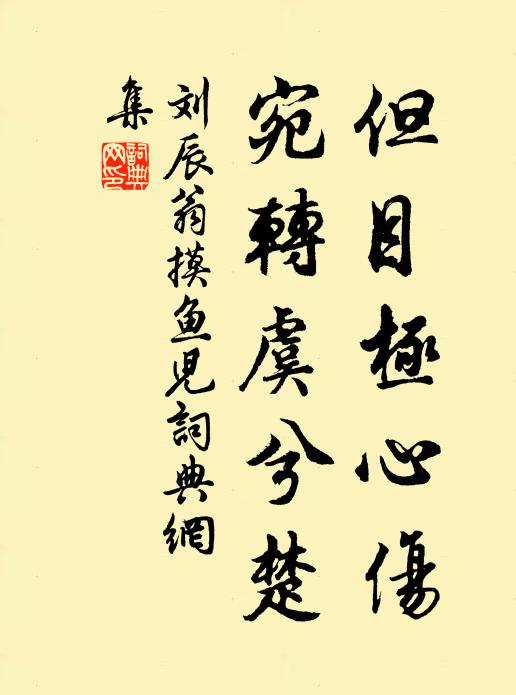 但目極心傷
宛轉虞兮楚
刘辰翁摸鱼児詞典網
集
詞典網印